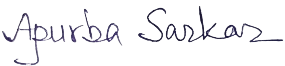 Apurba Sarkar